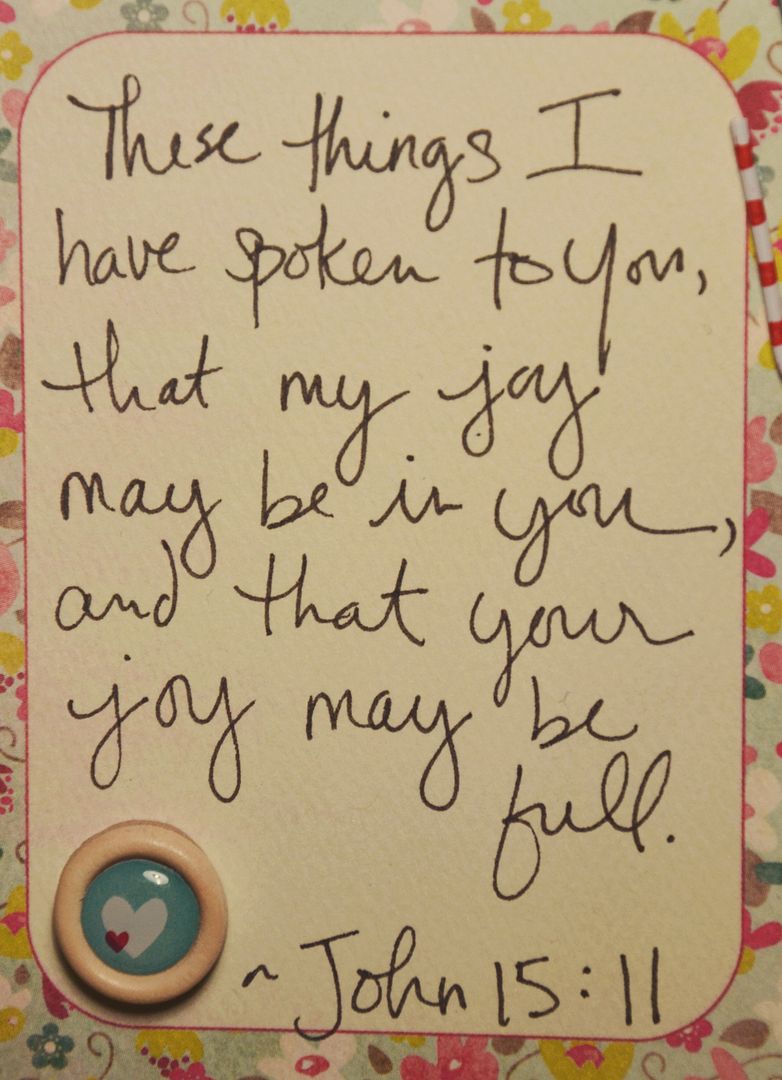 These things I
have spoken to you,
that my joy
may be in you,
and that your
joy may be
full.
~ John 15:11